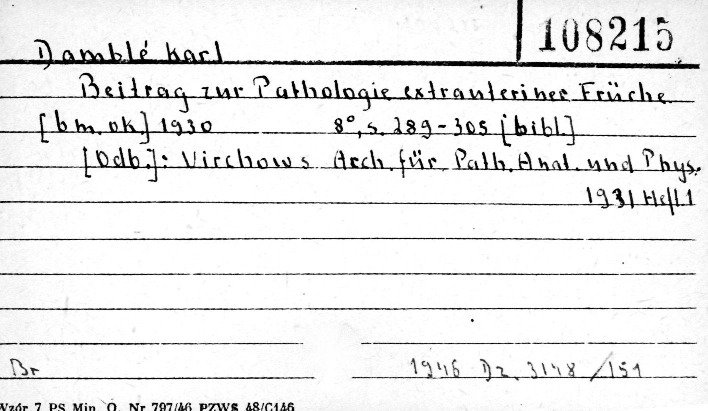 108215
Damblé Karl
Beitrag zur Pathologie extrauteriner Früche
[b m. ok] 1930 8°, s. 289-305 [bibl.]
[Odb.]: Virchows Arch. für Path. Anat. und Phys.
1931 Heft 1
Br 1946 Dz. 3148/151
Wzór 7 PS Min. O. Nr 797/46 PZWS 48/C146